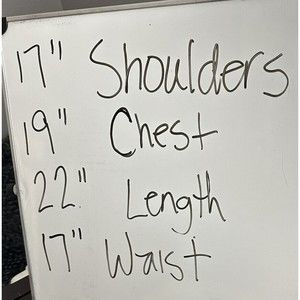 17" Shoulders
19" Chest
22" Length
17" Waist